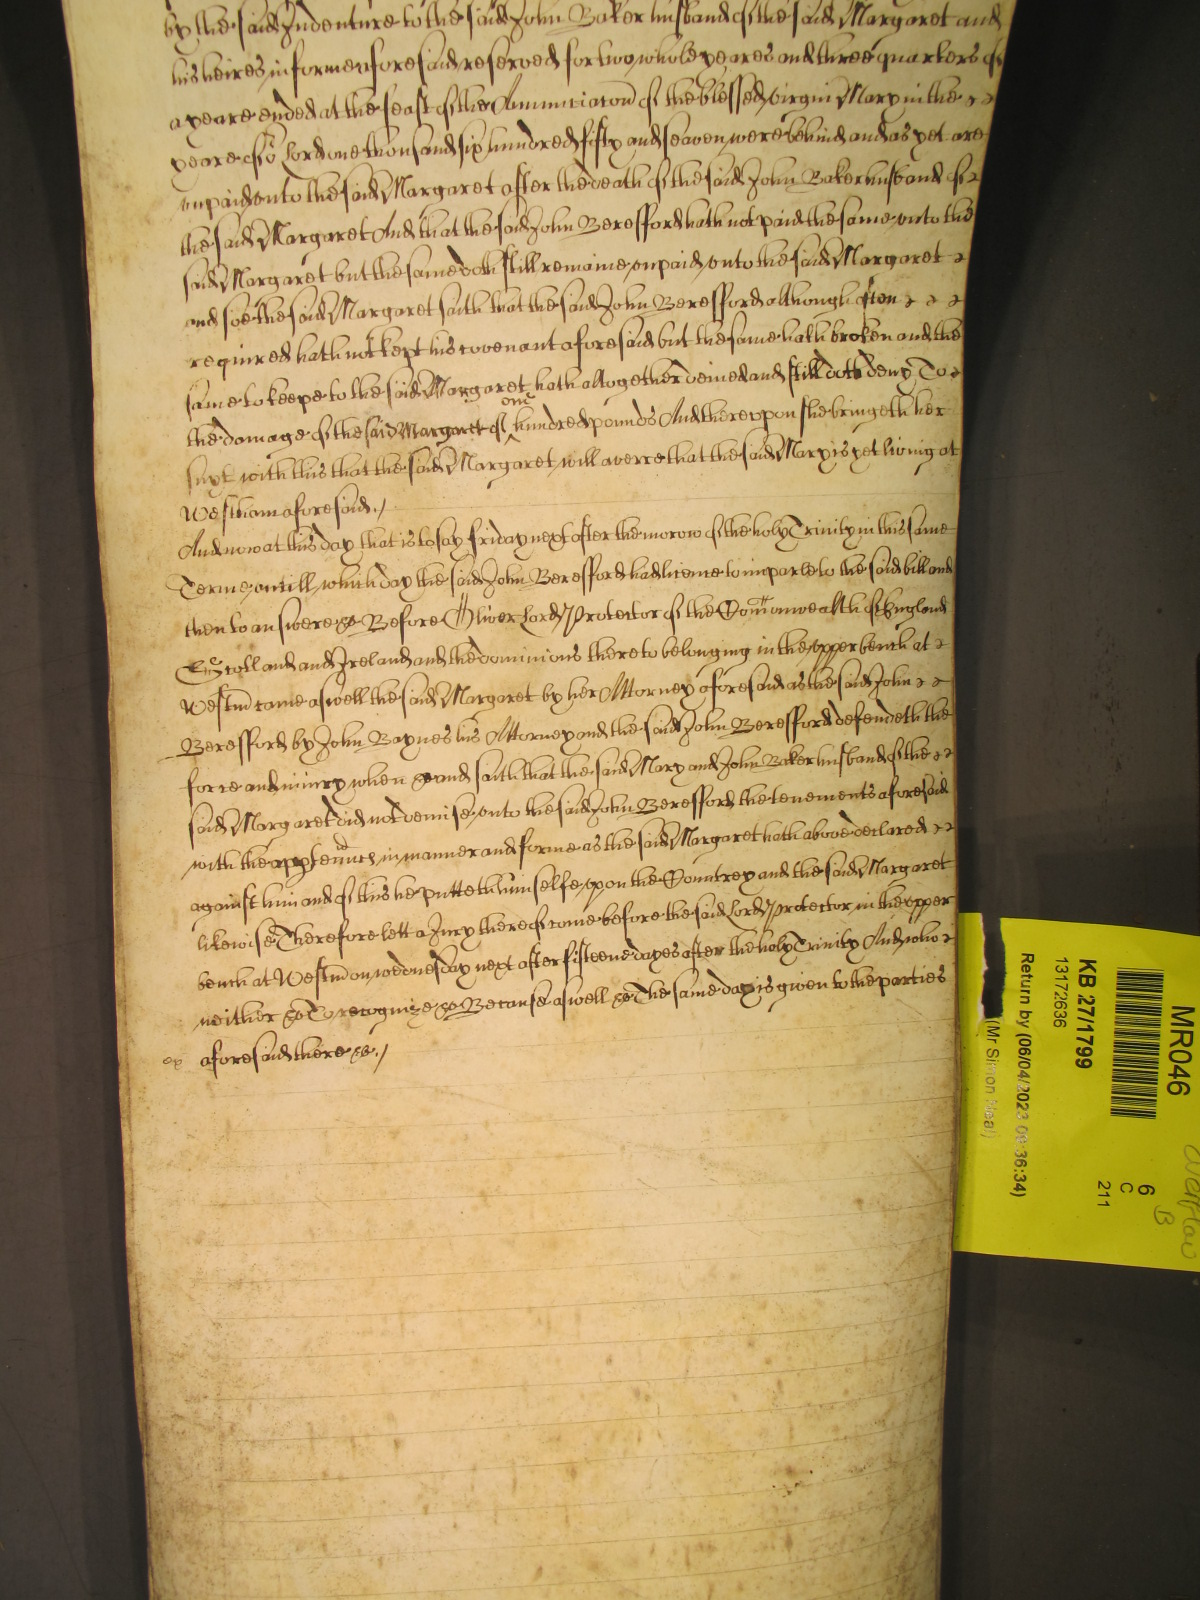 by the said Indenture to the said John Baker husband of the said Margaret and
his heires in forme aforesaid reserved for two whole yeares and three quarters of
a yeare ended at the feast of the Annunciacon of the blessed virgin Mary in the
yeare of o lord one thousand six hundred fifty and seaven were behind and as yet are
unpaid unto the said Margaret after the death of the said John Baker husband of
the said Margaret And that the said John Beresford hath not paid the same unto the
said Margaret but the same doth still remaine unpaid unto the said Margaret
and soe the said Margaret saith that the said John Beresford although often
required hath not kept his covenant aforesaid but the same hath broken and the
same to keepe to the said Margaret hath altogether denied and still doth deny To
the damage of the said Margaret of one hundred pounds And thereupon she bringeth her
suyt with this that the said Margaret will averre that the said Mary is yet living at
Westham aforesaid./
And now at this day that is to say friday next after the morow of the holy Trinity in this same
Terme untill which day the said John Beresford had licence to imparle to the said bill and
then to answere &c Before Oliver Lord Protector of the Comonwealth of England
Scotland and Ireland and the dominions thereto belonging in the upper bench at
Westm came aswell the said Margaret by her Attorney aforesaid as the said John
Beresford by John Baynes his Attorney and the said John Beresford defendeth the
force and iniury when &c and saith that the said Mary and John Baker husband of the
said Margaret did not demise unto the said John Beresford the tenements aforesaid
with the appurtennces in manner and forme as the said Margaret hath above declared
against him and of this he putteth himselfe upon the Countrey and the said Margaret
likewise Therefore lett a Jury thereof come before the said Lord Protector in the upper
bench at Westm on wednesday next after fifteene dayes after the holy Trinity And who
neither &c To recognize &c Because aswell &c The same day is given to the parties
ex aforesaid there &c./
MR046
6
C
211
KB 27/1799
13172636
Return by (06/04/2023 09:36:34)
(Mr Simon Neal)